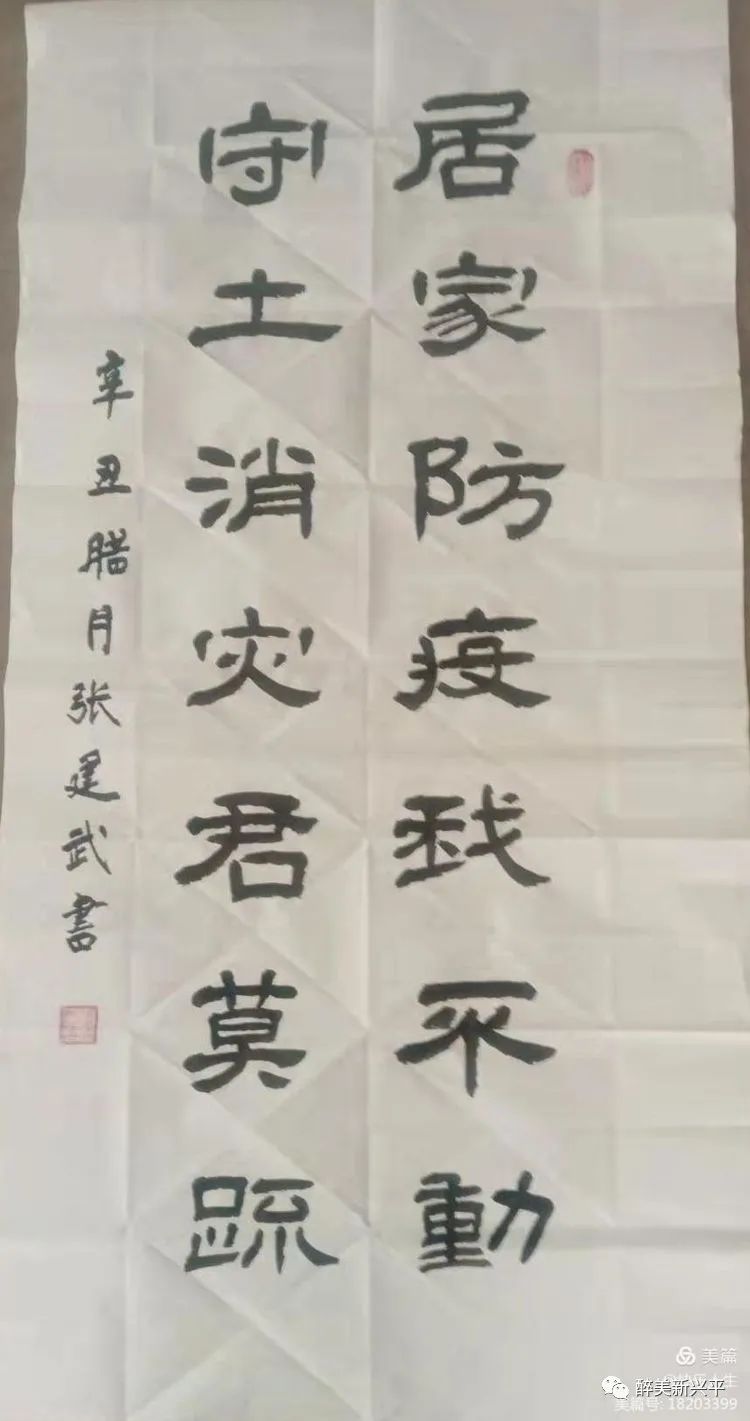 居家防疫我不動
守土消灾君莫疏
辛丑腊月张建武書
美篇
醉美新兴平
美篇号: 18203399